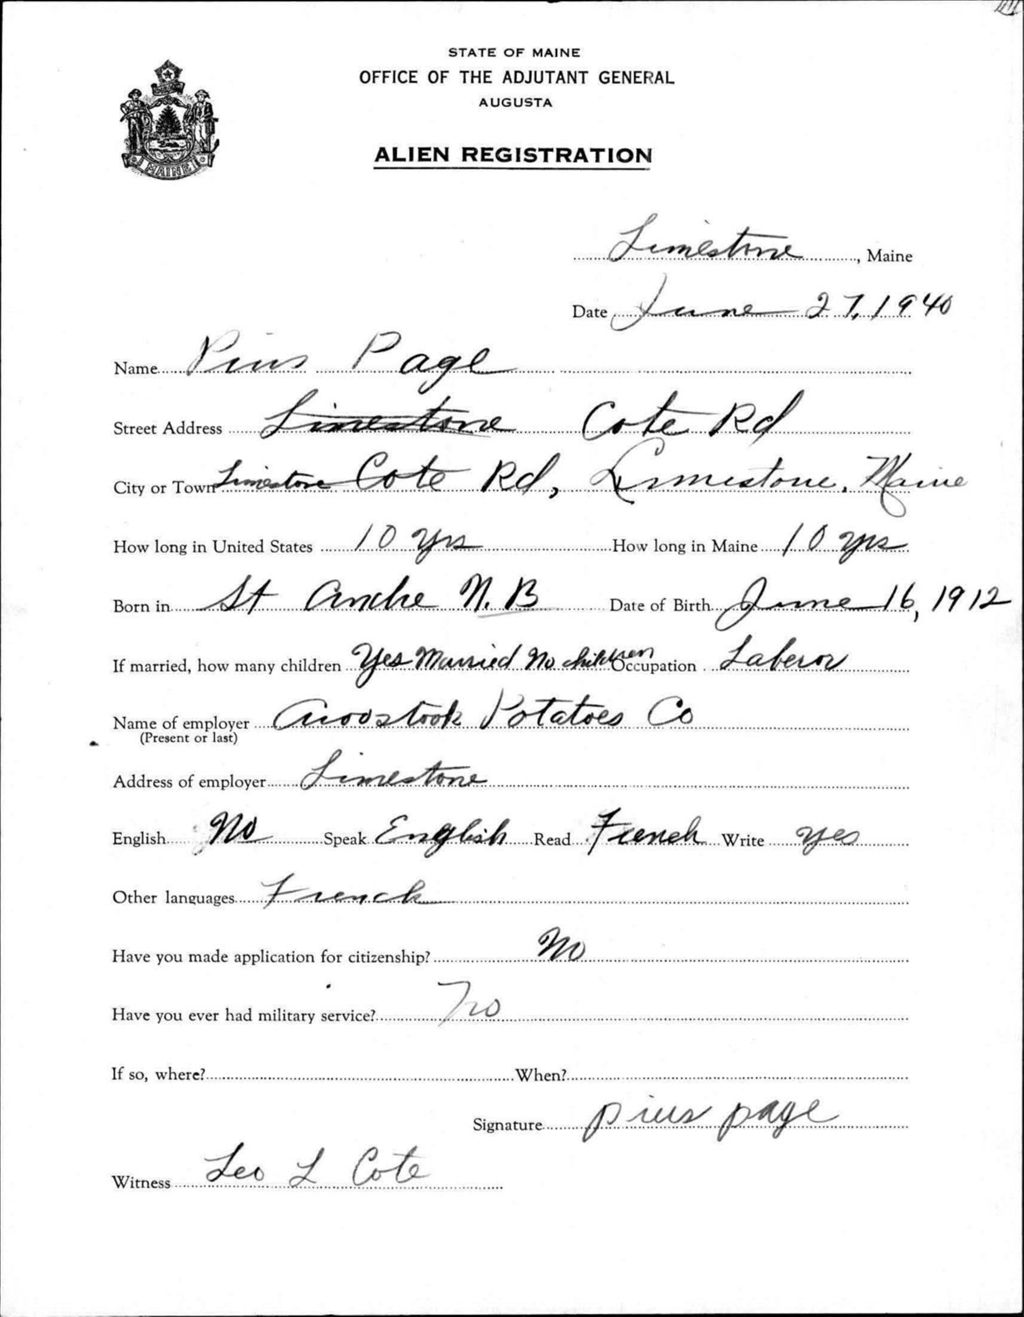 STATE OF MAINE
OFFICE OF THE ADJUTANT GENERAL
AUGUSTA
ALIEN REGISTRATION
MAINE
Limestone, Maine
Date June 27, 1940
Name Pius Page
Street Address Limestone Cote Rd
City or Town Limestone Cote Rd, Limestone, Maine
How long in United States 10 yrs How long in Maine 10 yrs
Born in St Andre N.B Date of Birth June 16, 1912
If married, how many children Yes Married No children Occupation Laberor
Name of employer Aroostook Potatoes Co
(Present or last)
Address of employer Limestone
English No Speak English Read French Write yes
Other languages French
Have you made application for citizenship? No
Have you ever had military service? No
If so, where? When?
Signature pius page
Witness Leo L Cote